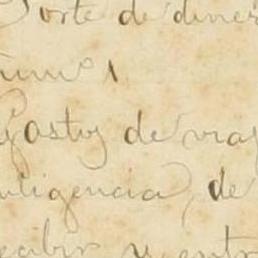 Porte de diner
Num. 1
Gastos de viaj
teligencia, de
recibir y entr